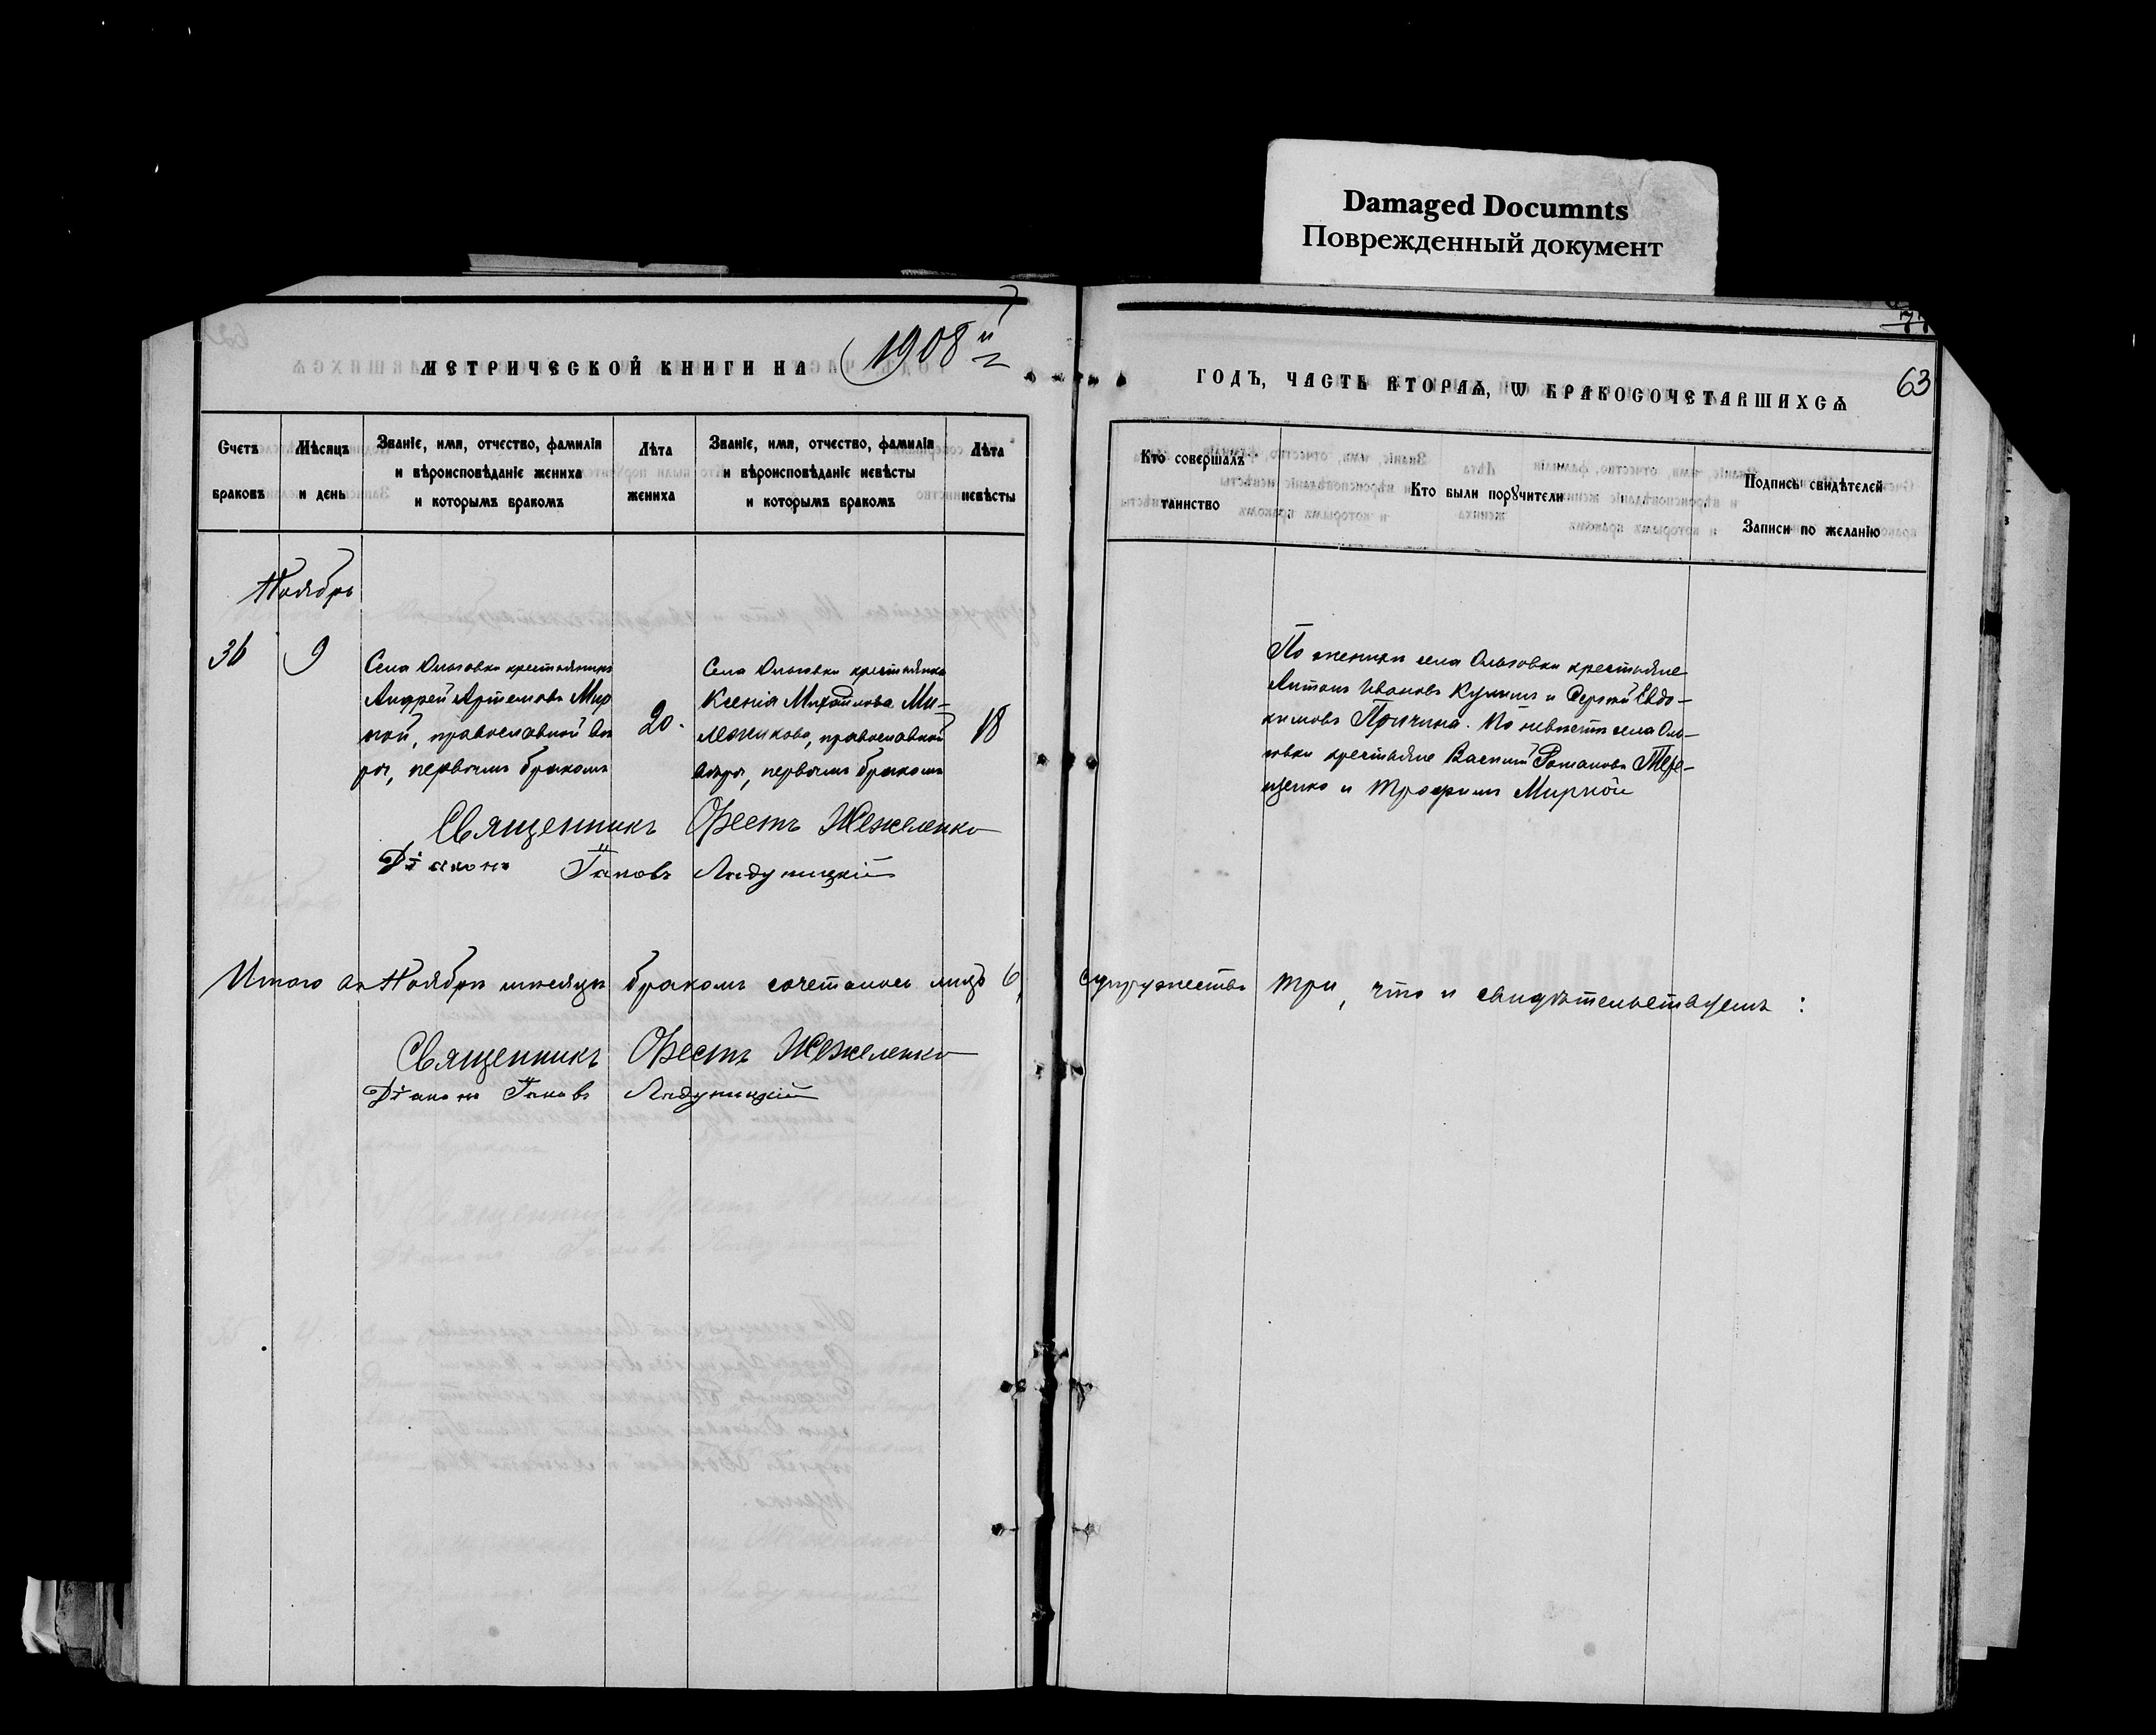 Damaged Documnts
Поврежденный документ
МЕТРИЧЕСКОЙ КНИГИ НА 1908й
ГОДЪ, ЧАСТЬ ВТОРАѦ, Ѡ БРАКОСОЧЕТАВШИХСѦ
63
Счетъ браковъ
Мѣсяцъ и день
Званіе, имя, отчество, фамилія и вѣроисповѣданіе жениха и которымъ бракомъ
Лѣта жениха
Званіе, имя, отчество, фамилія и вѣроисповѣданіе невѣсты и которымъ бракомъ
Лѣта невѣсты
Кто совершалъ таинство
Кто были порꙋчители
Подпись свидѣтелей Записи по желанію
Ноябрь
36
9
Села Ольговки крестьянинъ
Андрей Артемовъ Мир
ной, православной вѣ
ры, первымъ бракомъ
20.
Села Ольговки крестьянка
Ксенія Михайлова Ми-
православной
вѣры, первымъ бракомъ
18
По женихѣ села Ольговки крестьяне
Антонъ Ивановъ и Сергѣй Евдо-
кимовъ Причина. По невѣстѣ села Оль-
говки крестьяне Василій Романовъ Тере-
щенко и Трофимъ Мирной
Священникъ Орестъ Жежеленко
Діаконъ Іаковъ
Итого въ Ноябрѣ мѣсяцѣ бракомъ сочеталось лицъ 6, супружества три, что и свидѣтельствуемъ:
Священникъ Орестъ Жежеленко
Діаконъ Іаковъ